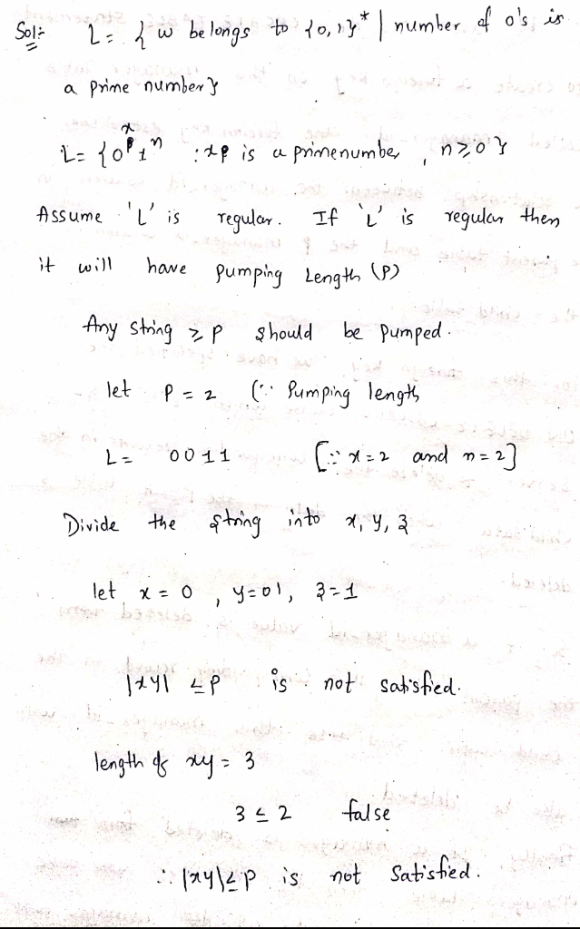 Sol:- L = { w belongs to {0,1}* | number of 0's is
a prime number}
L = {0ˣ1ⁿ : x is a prime number, n ≥ 0}
Assume 'L' is regular. If 'L' is regular then
it will have pumping Length (P)
Any string ≥ P should be pumped.
let P = 2 (∵ Pumping length
L = 0011 [∵ x = 2 and n = 2]
Divide the string into x, y, z
let x = 0, y = 01, z = 1
|xy| ≤ P is not satisfied.
length of xy = 3
3 ≤ 2 false
∴ |xy| ≤ P is not Satisfied.